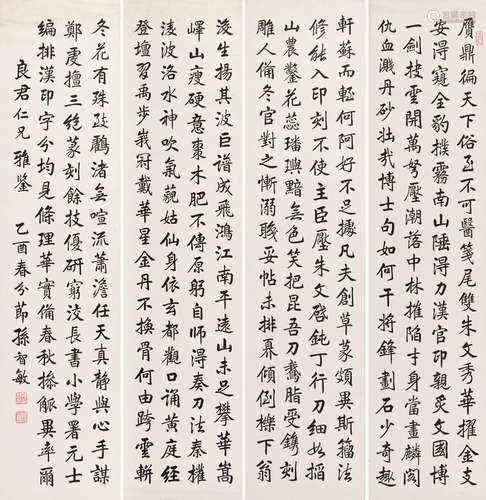 贋鼎徧天下俗至不可醫箋尾雙朱文秀華擢金支
安得窺全豹撲霧南山陲得刀漢官印親炙文國博
一劍掃雲開萬弩壓潮落中林推陷士身當畫麟閣
仇血濺丹砂壯哉博士句如何干將鋒劃石少奇趣
軒蘇而輕何阿好不足據凡夫創草篆頌異斯籀法
修能入印刻不使主臣壓朱文啓鈍丁行刀細如掐
山農鑿花蕊璠璵黯無色笑把昆吾刀鶩脂受鐫刻
雕人備冬官對之慚溺職妥帖未排奡傾倒櫟下翁
浚生揚其波巨譜成飛鴻江南平遠山未足攀華嵩
嶧山瘦硬意棗木肥不傳原躬自師得秦刀法秦權
淩波洛水神吹氣藐姑仙身依玄都觀口誦黃庭經
登壇習禹步峩冠戴華星金丹不換骨何由跨雲軿
冬花有殊致鸝渚無喧流蕭澹任天真靜與心手謀
鄭虔擅三絕篆刻餘技優研窮浚長書小學署元士
編排漢印字分均見條理華實備春秋摻觚異率爾
良君仁兄雅鑒　乙酉春分節孫智敏